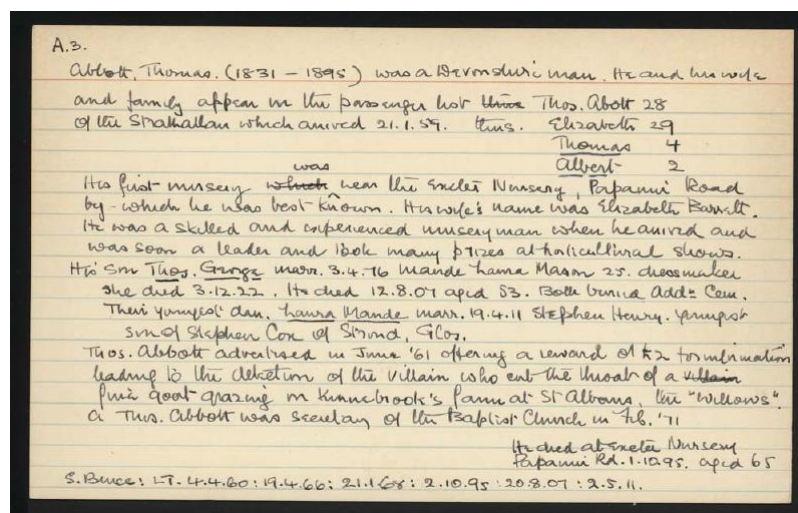 A.3.
Abbott, Thomas. (1831 – 1895) was a Devonshire man. He and his wife
and family appear in the passenger list thus Thos. Abott 28
of the Strathallan which arrived 21.1.59. thus. Elizabeth 29
Thomas 4
Albert 2
His first nursery which was near the Exeter Nursery, Papanui Road
by which he was best known. His wife's name was Elizabeth Barratt.
He was a skilled and experienced nurseryman when he arrived and
was soon a leader and took many prizes at horticultural shows.
His son Thos. George marr. 3.4.76 Maude Laura Mason 25. dressmaker
she died 3.12.22. He died 12.8.07 aged 53. Both buried Addn Cem.
Their youngest dau. Laura Maude marr. 19.4.11 Stephen Henry. youngest
son of Stephen Cox of Stroud, Glos.
Thos. Abbott advertised in June '61 offering a reward of £2 for information
leading to the detection of the villain who cut the throat of a villain
fine goat grazing on Kinnebrook's farm at St Albans, the "Willows".
A Thos. Abbott was secretary of the Baptist Church in Feb. '71
He died at Exeter Nursery
Papanui Rd. 1.10.95. aged 65
S. Bruce: LT. 4.4.60: 19.4.66: 21.1.68: 2.10.95: 20.8.07: 2.5.11.